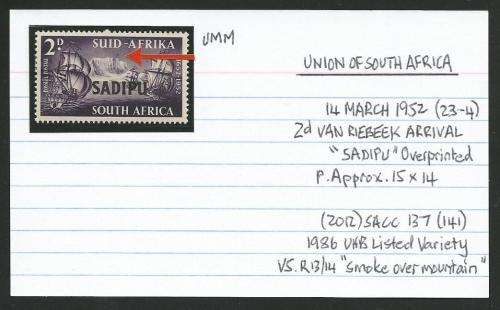 UMM
2D SUID-AFRIKA
1652-1952
SADIPU
SOUTH AFRICA
UNION OF SOUTH AFRICA
14 MARCH 1952 (23-4)
2d VAN RIEBEEK ARRIVAL
"SADIPU" Overprinted
P. Approx. 15 x 14
(2012) SACC 137 (141)
1986 UHB Listed Variety
V5. R13/14 "Smoke over mountain"